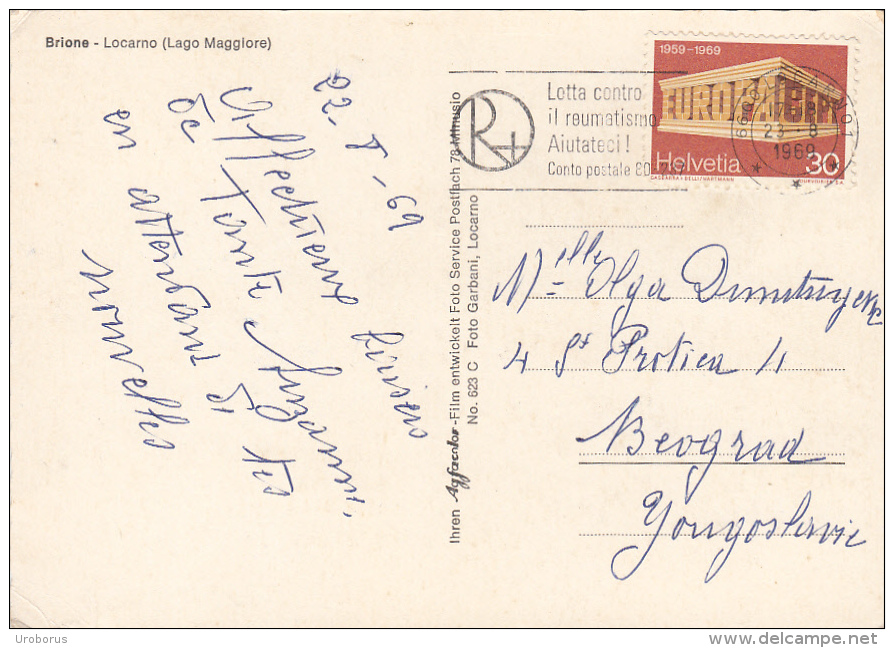 Brione - Locarno (Lago Maggiore)
22-8-69
Affectueux baisers
de Tante Suzanne.
en attendant de tes
nouvelles
Ihren Agfacolor-Film entwickelt Foto Service Postfach 78 Minusio
No. 623 C Foto Garbani, Locarno
Lotta contro
il reumatismo
Aiutateci!
Conto postale 80-
1959-1969
EUROPA CEPT
Helvetia 30
23-8
1969
Mlle Olga
4 St Protica 4
Beograd
Yougoslavie
Uroborus
www.delcampe.net